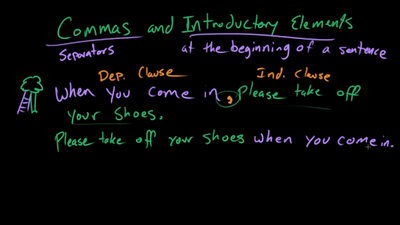 Commas and Introductory Elements
Separators at the beginning of a sentence
Dep. Clause Ind. Clause
When you come in, Please take off
your shoes.
Please take off your shoes when you come in.